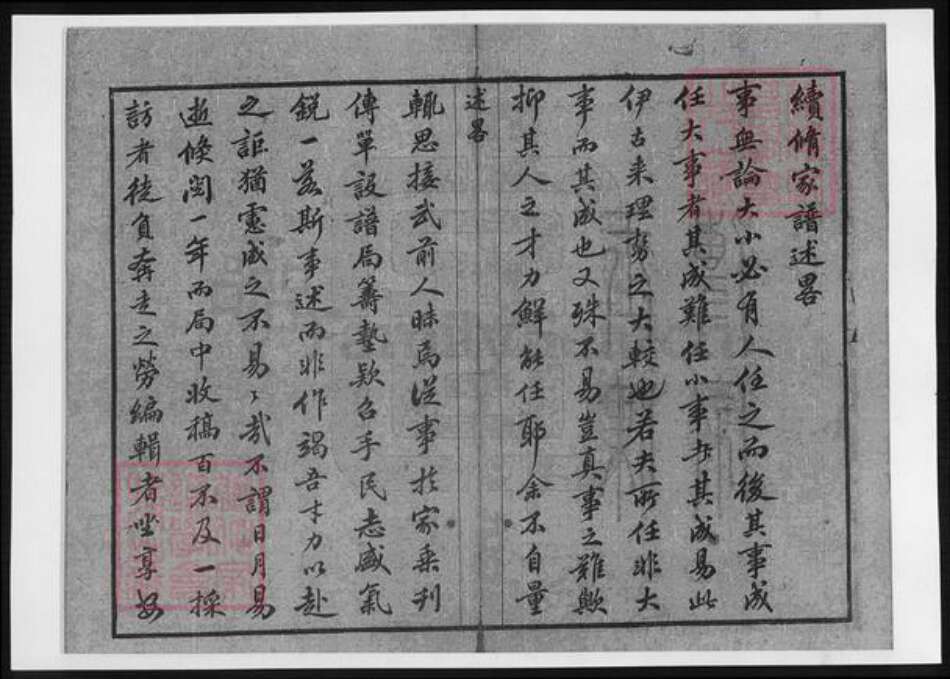 續脩家譜述畧
事無論大小必有人任之而後其事成
任大事者其成難任小事者其成易此
伊古来理勢之大較也若夫所任非大
事而其成也又殊不易豈真事之難歟
抑其人之才力鮮能任耶余不自量
述畧
輒思接武前人昧焉從事於家乘刊
傳單設譜局籌墊欵召手民志盛氣
銳一若斯事述而非作竭吾才力以赴
之詎猶慮成之不易易哉不謂日月易
逝倏閲一年而局中收稿百不及一採
訪者徒負奔走之勞編輯者坐享